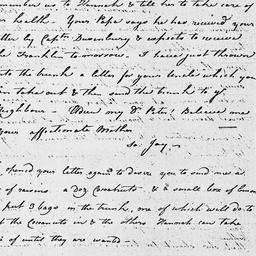 remember us to Hannah & tell her to take care of
her health. Your Papa says he has received your
letter by Captn. Dusenbury & expects to receive
Franklin tomorrow. I have just thrown
into the trunk a letter for your Uncle which you
take out & then send the trunk to y
Neighbour - Adieu my Dr. Peter! Believe me
your affectionate Mother
Sa. Jay -
opened your letter again to desire you to send me a
of raisins a Doz Cocoanuts & a small box of
put 3 bags in the trunk, one of which will do to
the Cocoanuts in & the others Hannah can take
of until they are wanted -